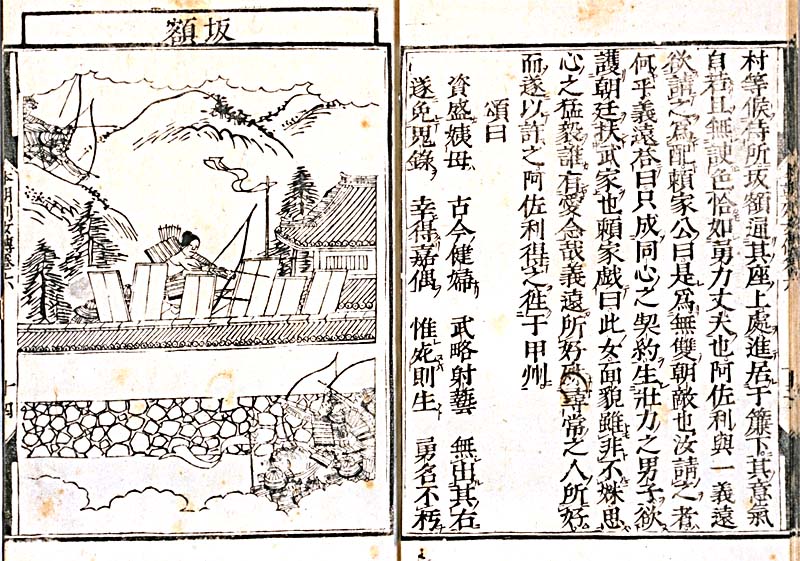 村等候侍所坂額通其座上處進居于簾下其意氣
自若且無諛色恰如勇力丈夫也阿佐利與一義遠
欲請之為配頼家公曰是為無雙朝敵也汝請之者
何乎義遠荅曰只成同心之契約生壯力之男子欲
護朝廷扶武家也頼家戯曰此女面貌雖非不姝思
心之猛毅誰有愛念哉義遠所好尋常之人所好
而遂以許之阿佐利得之徃于甲州
頌曰
資盛姨母 古今健婦 武略射藝 無出其右
遂免鬼錄 幸得嘉偶 惟死則生 勇名不朽
坂額
本朝列女傳卷六
十四